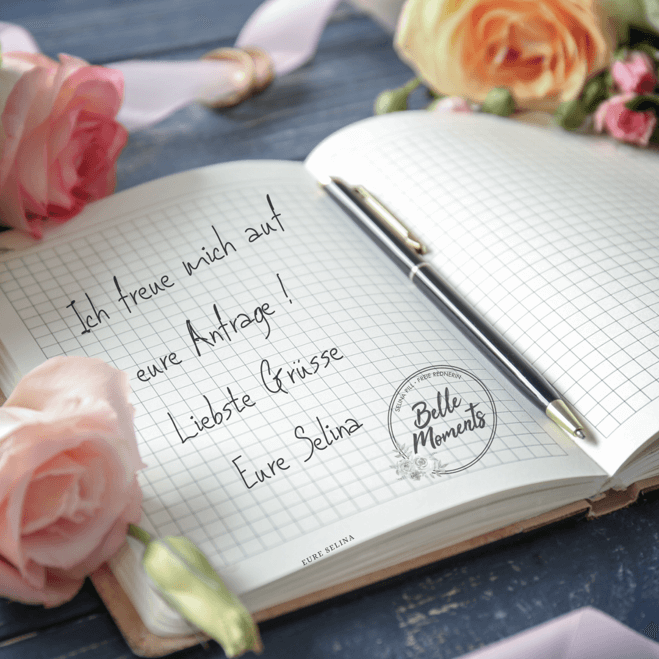 Ich freue mich auf
eure Anfrage !
Liebste Grüsse
Eure Selina
SELINA PILL - FREIE REDNERIN
Belle
Moments
EURE SELINA